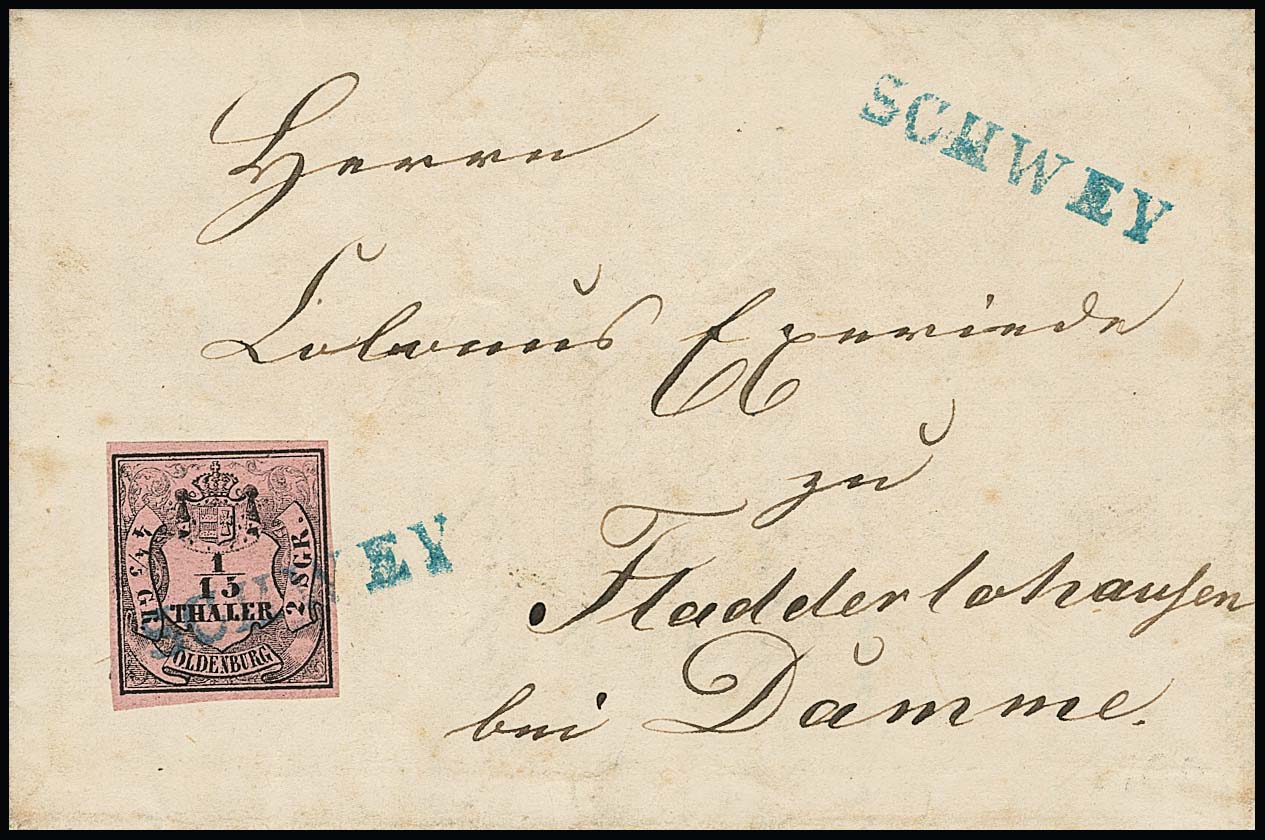 SCHWEY
Herrn
Colonus Exeriede
zu
Fladderlohausen
bei Damme.
SCHWEY
4 4/5 GR.
1/15
THALER
2 SGR.
OLDENBURG